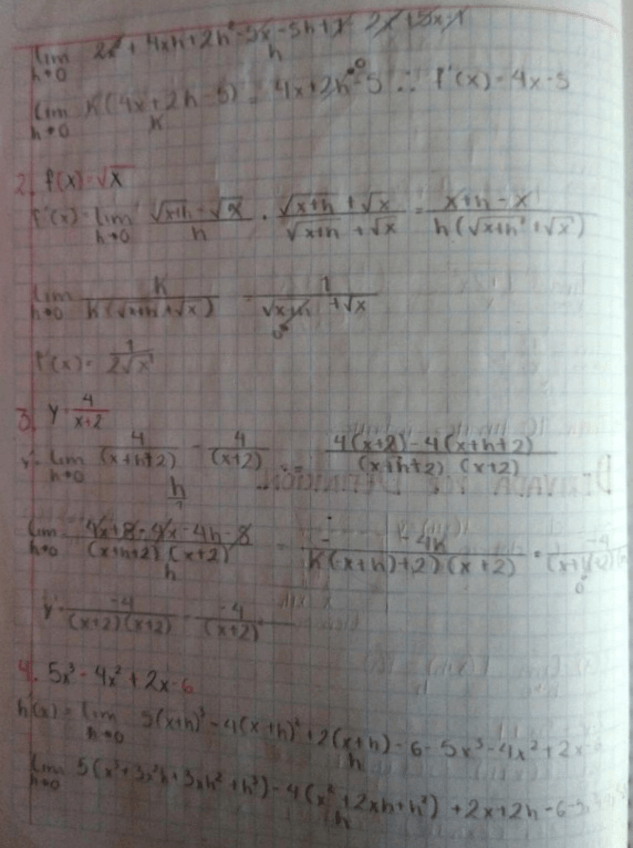 lim h→0 2x² + 4xh + 2h² - 5x - 5h + 1 - 2x² + 5x - 1 / h
lim h→0 h(4x + 2h - 5) / h = 4x + 2h - 5 ∴ f'(x) = 4x - 5
2. f(x) = √x
f'(x) = lim h→0 √x+h - √x / h · √x+h + √x / √x+h + √x = x + h - x / h(√x+h + √x)
lim h→0 h / h(√x+h + √x) = 1 / √x+h + √x
f'(x) = 1 / 2√x
3. y = 4 / x+2
y' = lim h→0 4 / (x+h+2) - 4 / (x+2) / h = 4(x+2) - 4(x+h+2) / (x+h+2) (x+2)
lim h→0 4x + 8 - 4x - 4h - 8 / (x+h+2) (x+2) / h = -4h / h(x+h)+2)(x+2) = -4
y' = -4 / (x+2)(x+2) = -4 / (x+2)²
4. 5x³ - 4x² + 2x - 6
h'(x) = lim h→0 5(x+h)³ - 4(x+h)² + 2(x+h) - 6 - 5x³ - 4x² + 2x / h
lim h→0 5(x³ + 3x²h + 3xh² + h³) - 4(x² + 2xh + h²) + 2x + 2h - 6 / h